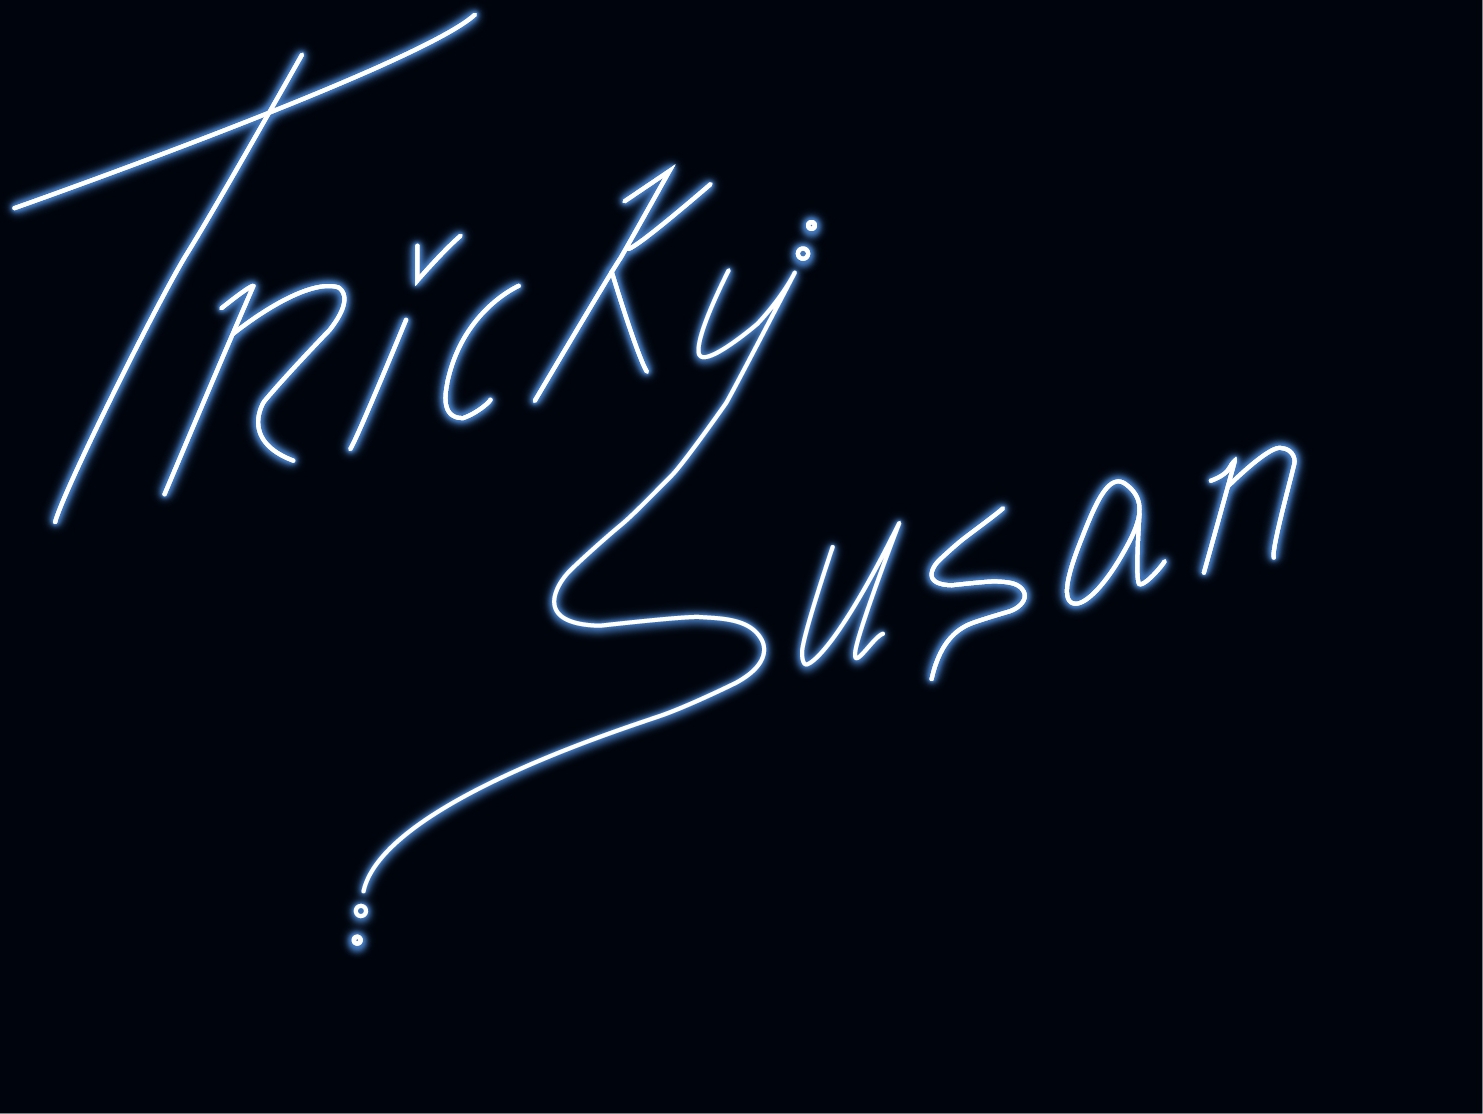 Tricky
Susan